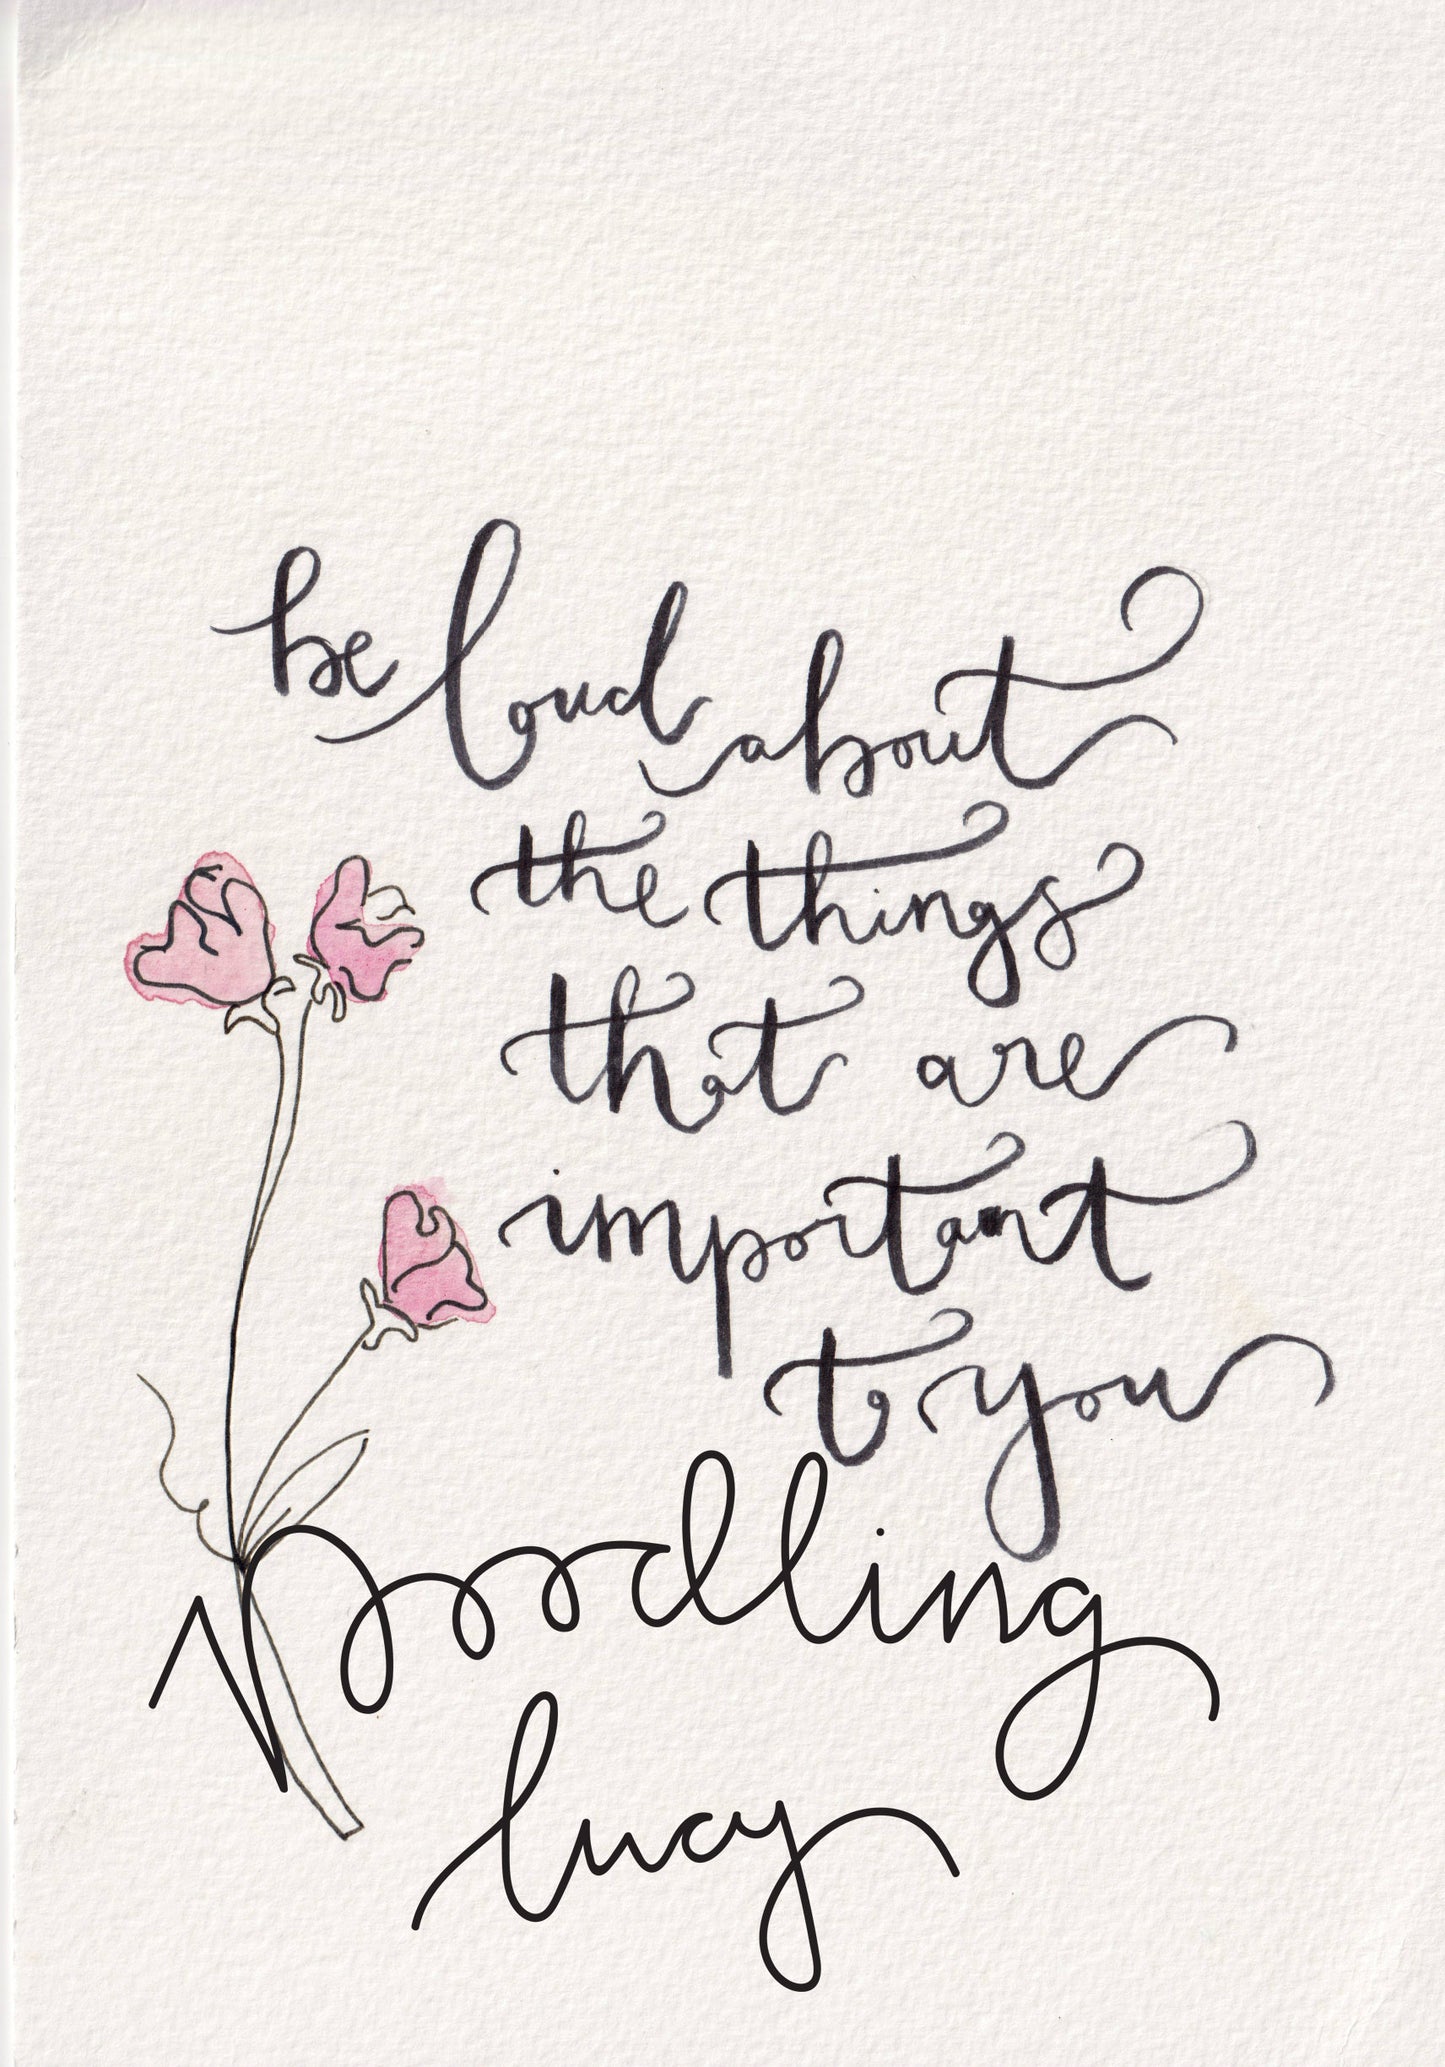 be loud about
the things
that are
important
to you
noodling
lucy